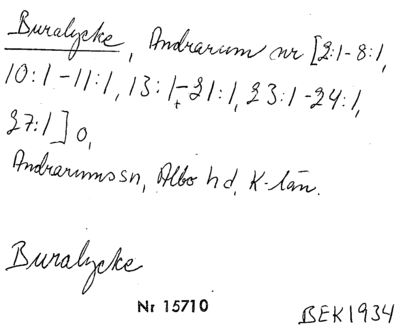 Buralycke, Andrarum nr [2:1-8:1,
10:1-11:1, 13:1-21:1, 23:1-24:1,
27:1] o,
Andrarums sn, Albo hd, K-län.
Buralycke
Nr 15710
BEK1934